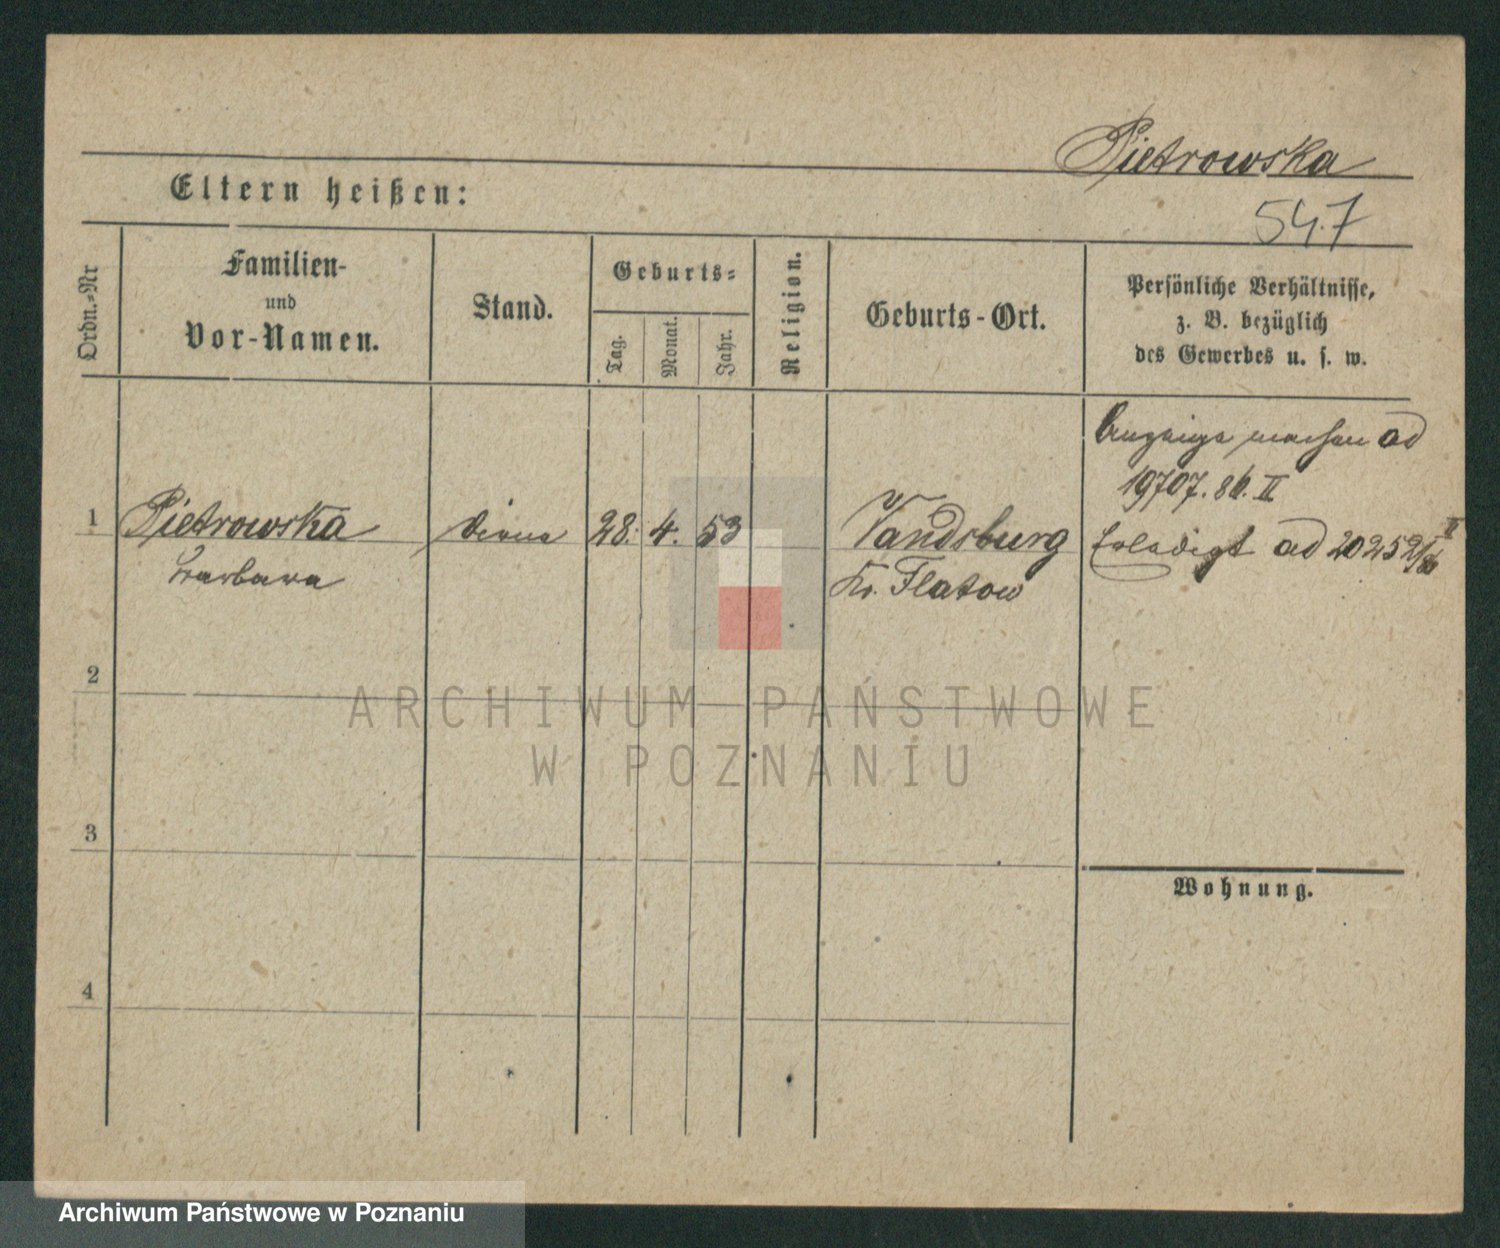 Pietrowska
Eltern heißen:
547
Ordn.=Nr
Familien-
und
Vor-Namen.
Stand.
Geburts=
Tag.
Monat.
Jahr.
Religion.
Geburts-Ort.
Persönliche Verhältnisse,
z. B. bezüglich
des Gewerbes u. s. w.
Anzeige machen ad
19707. 86. II
1
Pietrowska
28. 4. 53
Vandsburg
Erledigt ad 20252
II
Barbara
Kr. Flatow
2
ARCHIWUM PAŃSTWOWE
W POZNANIU
3
Wohnung.
4
Archiwum Państwowe w Poznaniu